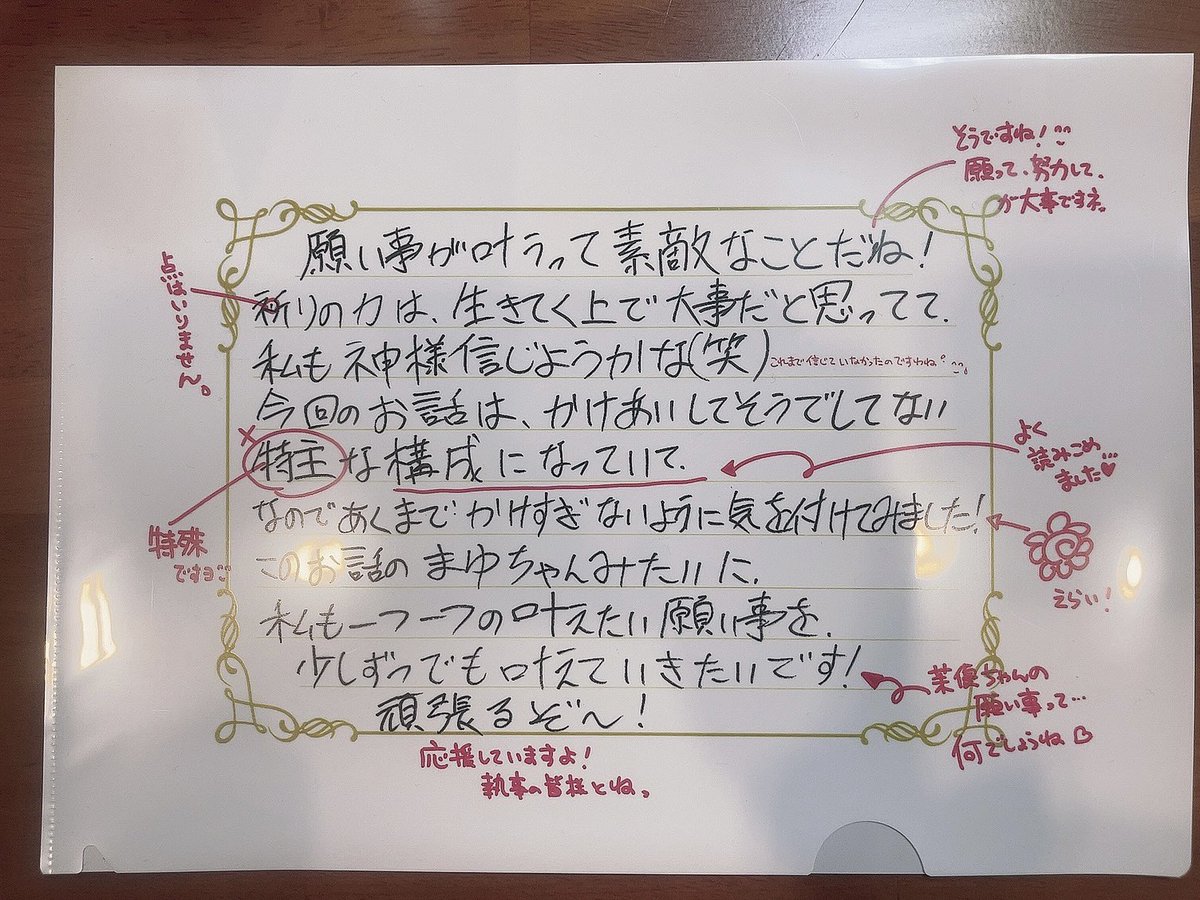 願い事が叶うって素敵なことだね!
祈りの力は、生きてく上で大事だと思ってて、
私も神様信じようかな(笑)
今回のお話は、かけあいしてそうでしてない
特主な構成になっていて、
なのであくまでかけすぎないように気を付けてみました!
このお話のまゆちゃんみたいに、
私も一つ一つの叶えたい願い事を、
少しずつでも叶えていきたいです!
頑張るぞ〜!
そうですね!
願って、努力して、
が大事ですネ。
点はいりません。
これまで信じていなかったのですわね
よく
読みこめ…
ました♥
特殊
ですヨ
えらい!
ちゃんの
願い事って…
何でしょうね
応援していますよ!
執事の皆様とね。